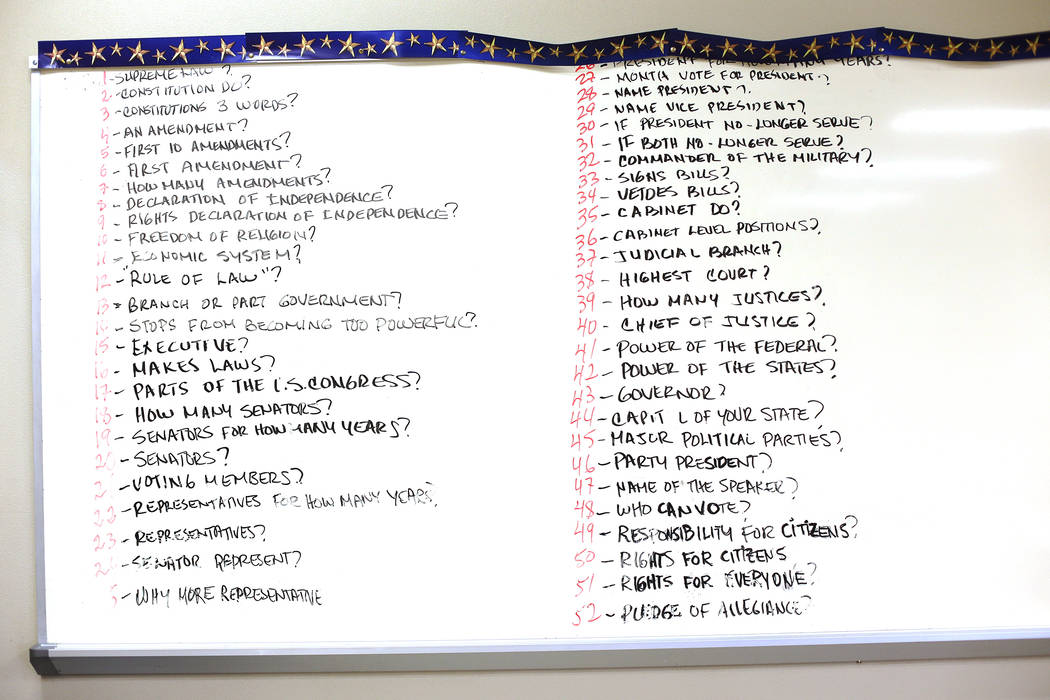 1 - SUPREME LAW?
2 - CONSTITUTION DO?
3 - CONSTITUTIONS 3 WORDS?
4 - AN AMENDMENT?
5 - FIRST 10 AMENDMENTS?
6 - FIRST AMENDMENT?
7 - HOW MANY AMENDMENTS?
8 - DECLARATION OF INDEPENDENCE?
9 - RIGHTS DECLARATION OF INDEPENDENCE?
10 - FREEDOM OF RELIGION?
11 - ECONOMIC SYSTEM?
12 - "RULE OF LAW"?
13 - BRANCH OR PART GOVERNMENT?
14 - STOPS FROM BECOMING TOO POWERFUL?
15 - EXECUTIVE?
16 - MAKES LAWS?
17 - PARTS OF THE U.S. CONGRESS?
18 - HOW MANY SENATORS?
19 - SENATORS FOR HOW MANY YEARS?
20 - SENATORS?
2 - VOTING MEMBERS?
22 - REPRESENTATIVES FOR HOW MANY YEARS?
23 - REPRESENTATIVES?
2 - SENATOR REPRESENT?
5 - WHY MORE REPRESENTATIVE
26 - PRESIDENT FOR HOW MANY YEARS?
27 - MONTH VOTE FOR PRESIDENT?
28 - NAME PRESIDENT?
29 - NAME VICE PRESIDENT?
30 - IF PRESIDENT NO-LONGER SERVE?
31 - IF BOTH NO-LONGER SERVE?
32 - COMMANDER OF THE MILITARY?
33 - SIGNS BILLS?
34 - VETOES BILLS?
35 - CABINET DO?
36 - CABINET LEVEL POSITIONS?
37 - JUDICIAL BRANCH?
38 - HIGHEST COURT?
39 - HOW MANY JUSTICES?
40 - CHIEF OF JUSTICE?
41 - POWER OF THE FEDERAL?
42 - POWER OF THE STATES?
43 - GOVERNOR?
44 - CAPIT L OF YOUR STATE?
45 - MAJOR POLITICAL PARTIES?
46 - PARTY PRESIDENT?
47 - NAME OF THE SPEAKER?
48 - WHO CAN VOTE?
49 - RESPONSIBILITY FOR CITIZENS?
50 - RIGHTS FOR CITIZENS
51 - RIGHTS FOR EVERYONE?
52 - PLEDGE OF ALLEGIANCE?